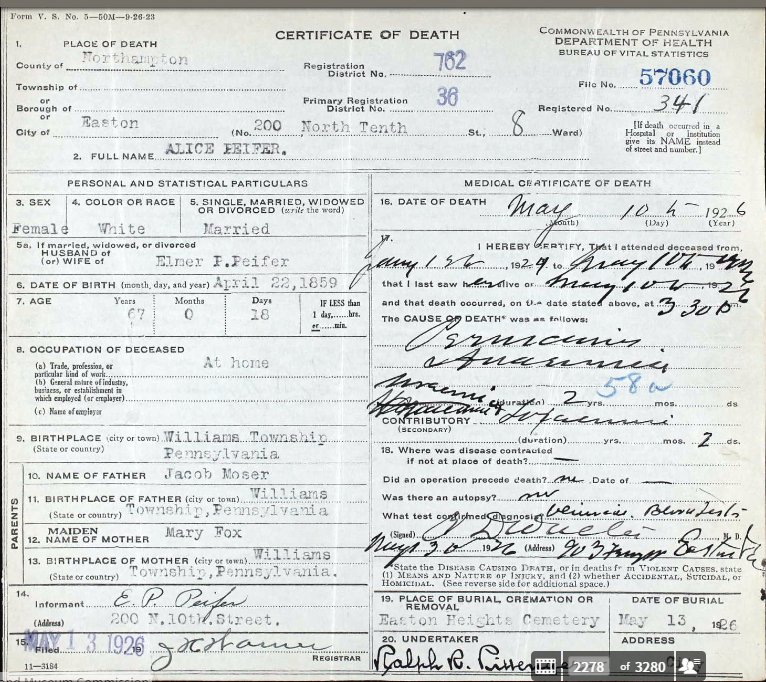 Form V. S. No. 5—50M—9-26-23
CERTIFICATE OF DEATH
COMMONWEALTH OF PENNSYLVANIA
DEPARTMENT OF HEALTH
BUREAU OF VITAL STATISTICS
1. PLACE OF DEATH
County of Northampton
Registration District No. 762
File No. 57060
Township of
or
Borough of
Primary Registration District No. 36
Registered No. 341
or
City of Easton
(No. 200 North Tenth St., 8 Ward)
[If death occurred in a Hospital or Institution give its NAME instead of street and number.]
2. FULL NAME ALICE PEIFER.
PERSONAL AND STATISTICAL PARTICULARS
3. SEX
Female
4. COLOR OR RACE
White
5. SINGLE, MARRIED, WIDOWED OR DIVORCED (write the word)
Married
5a. If married, widowed, or divorced
HUSBAND of
(or) WIFE of Elmer P.Peifer
6. DATE OF BIRTH (month, day, and year) April 22,1859
7. AGE Years Months Days
67 0 18
IF LESS than
1 day,......hrs.
or......min.
8. OCCUPATION OF DECEASED
At home
(a) Trade, profession, or particular kind of work
(b) General nature of industry, business, or establishment in which employed (or employer)
(c) Name of employer
9. BIRTHPLACE (city or town) Williams Township
(State or country) Pennsylvania
PARENTS
10. NAME OF FATHER Jacob Moser
11. BIRTHPLACE OF FATHER (city or town) Williams
(State or country) Township,Pennsylvania
12. MAIDEN NAME OF MOTHER Mary Fox
13. BIRTHPLACE OF MOTHER (city or town) Williams
(State or country) Township,Pennsylvania.
14.
Informant E. P. Peifer
(Address) 200 N.10th.Street.
15.
Filed MAY 13 1926 19
REGISTRAR
11—3184
MEDICAL CERTIFICATE OF DEATH
16. DATE OF DEATH May 10th 1926
(Month) (Day) (Year)
17.
I HEREBY CERTIFY, That I attended deceased from
1924 to May 10th 19
that I last saw her alive on May 10th 1926
and that death occurred, on the date stated above, at 3 30 P
The CAUSE OF DEATH* was as follows:
Pernicious
Anaemia
58a
(duration) 2 yrs. mos. ds.
CONTRIBUTORY
(SECONDARY)
(duration) yrs. mos. 2 ds.
18. Where was disease contracted
if not at place of death? —
Did an operation precede death? no Date of —
Was there an autopsy? no
What test confirmed diagnosis? Blood Tests
(Signed) M. D.
1926 (Address)
*State the DISEASE CAUSING DEATH, or in deaths from VIOLENT CAUSES, state
(1) MEANS AND NATURE OF INJURY, and (2) whether ACCIDENTAL, SUICIDAL, or
HOMICIDAL. (See reverse side for additional space.)
19. PLACE OF BURIAL, CREMATION OR REMOVAL
Easton Heights Cemetery
DATE OF BURIAL
May 13, 1926
20. UNDERTAKER
Ralph R.
ADDRESS
2278 of 3280